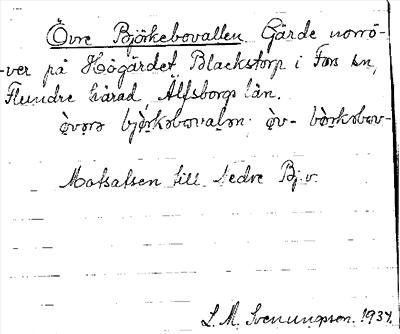 Övre Björkebovallen Gärde norrö-
-ver på Högärdet Blackstorp i Fors sn,
Flundre härad, Älfsborgs län.
Motsatsen till Nedre Bj.v.
L. M. Svenungson. 1934.